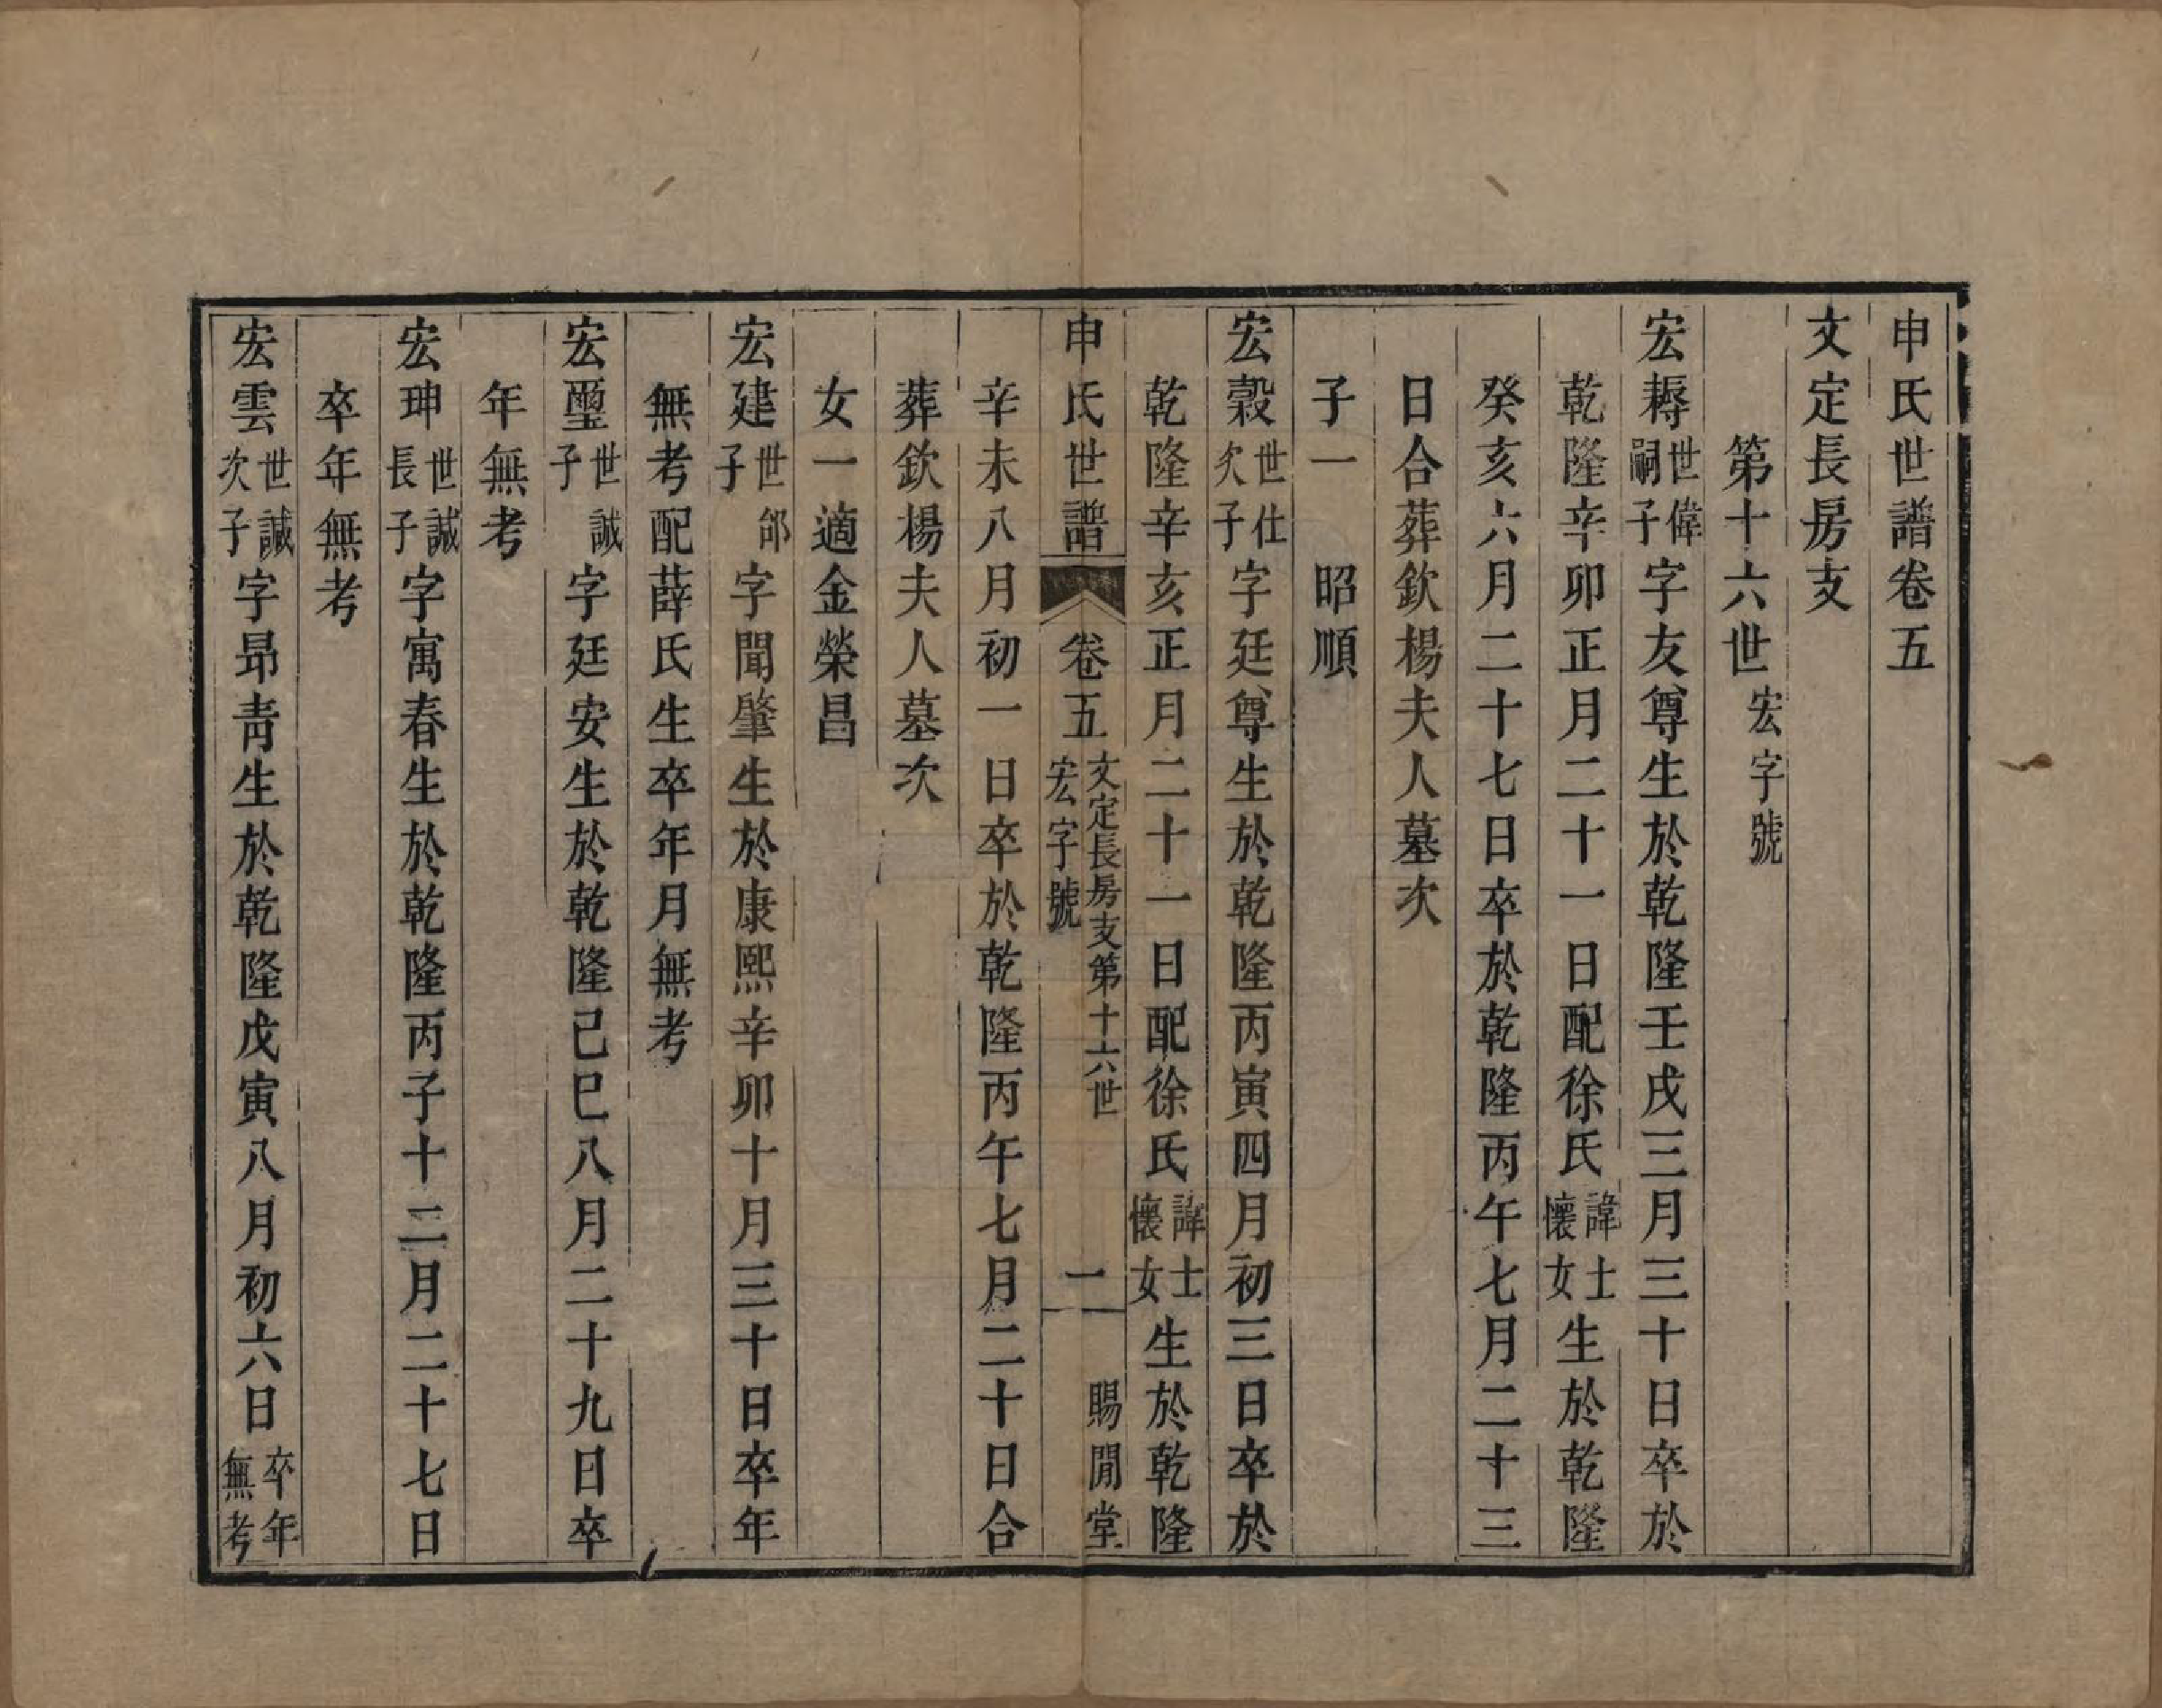 申氏世譜卷五
文定長房支
第十六世宏字號
宏耨世偉嗣子字友尊生於乾隆壬戌三月三十日卒於
乾隆辛卯正月二十一日配徐氏諱士懷女生於乾隆
癸亥六月二十七日卒於乾隆丙午七月二十三
日合葬欽楊夫人墓次
子一　昭順
宏穀世仕次子字廷尊生於乾隆丙寅四月初三日卒於
乾隆辛亥正月二十一日配徐氏諱士懷女生於乾隆
申氏世譜　卷五　文定長房支第十六世宏字號　一　賜閒堂
辛未八月初一日卒於乾隆丙午七月二十日合
葬欽楊夫人墓次
女一適金榮昌
宏建世郃子字聞肇生於康熙辛卯十月三十日卒年
無考配薛氏生卒年月無考
宏璽世誠子字廷安生於乾隆己巳八月二十九日卒
年無考
宏珅世諴長子字寓春生於乾隆丙子十二月二十七日
卒年無考
宏雲世諴次子字昻青生於乾隆戊寅八月初六日卒年無考